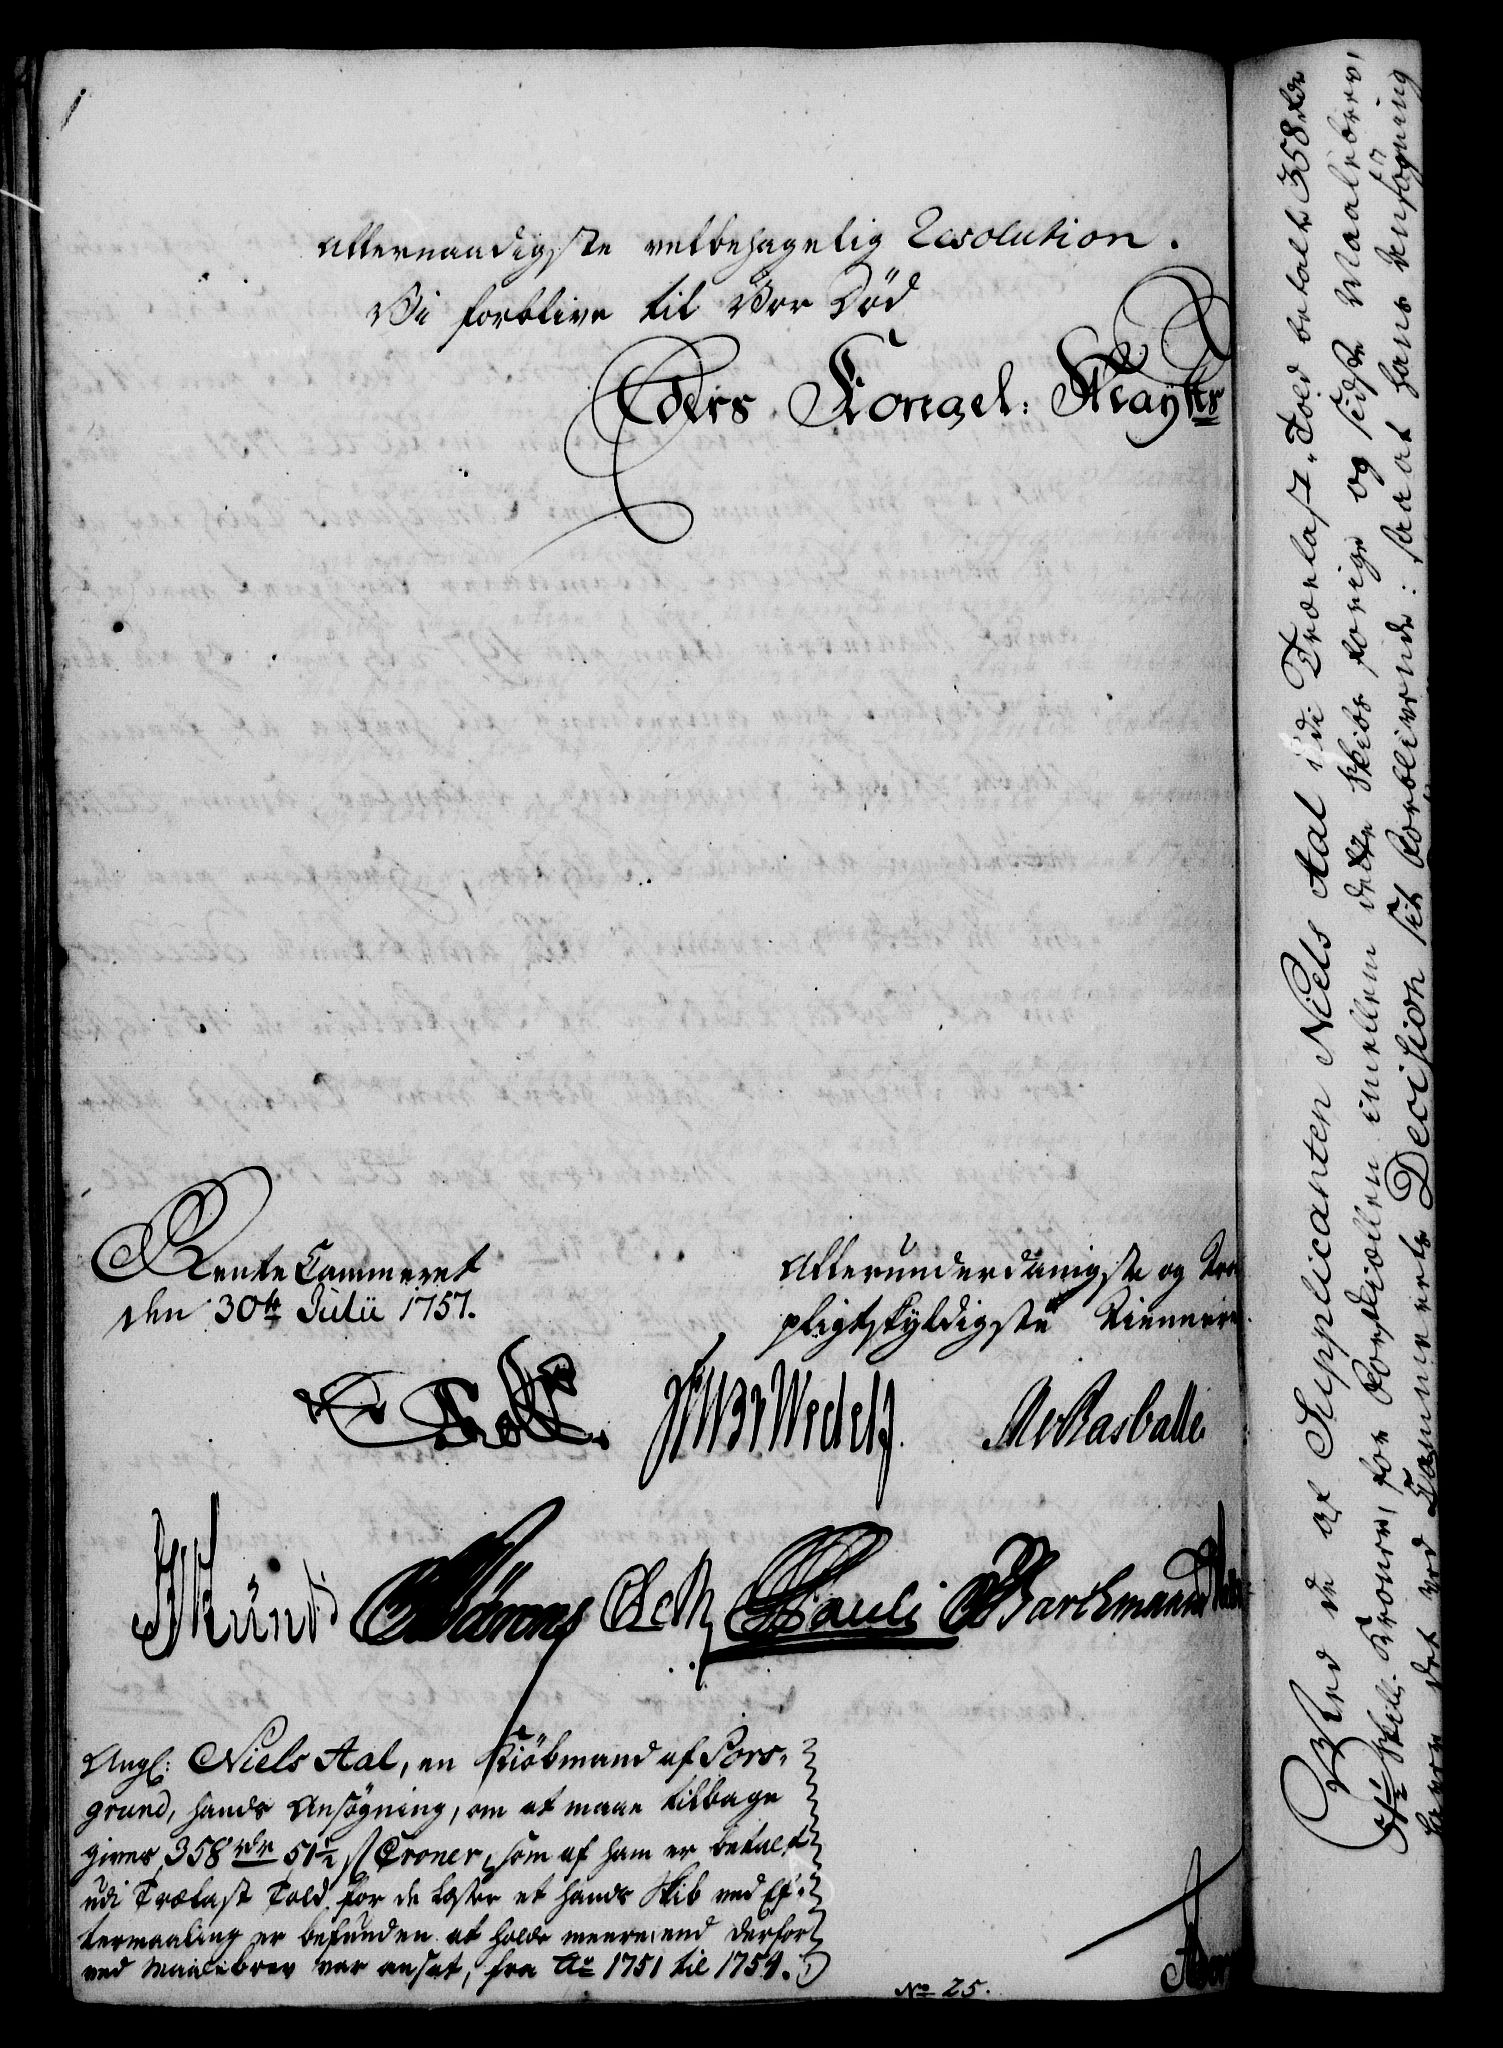 allernaadigste velbehagelig Resolution.
Vi forblive til Vor Död
Eders Kongel: Mayts
Rente Cammeret
den 30te Julii 1757.
Allerunderdanigste og
pligtskyldigste Tienere
Wedel
Rasballe
Pauli
Barthmann
Angl: Niels Aal, en Kiöbmand af Pors-
grund, hands Ansögning, om at maae tilbage
gives 358 rdr 51½ ß Croner, som af ham er betalt
udi Trælast Told for de Læster et hands Skib ved Ef-
termaaling er befunden at holde meere end derfor
ved Maalebrev var ansat, fra Ao 1751 til 1754.
No 25.
Ved de af Supplicanten Niels Aal udi Trælast-Told betalte 358 rdr
51½ Skill: Kroner, for Forskiællen imellem dette Skibs forrige og sidste Maalebrev,
haver det ved Cammerets Decision sit Forblivende: saa at hans Ansøgning